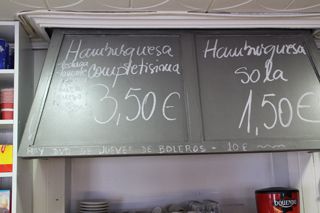 Hamburguesa
Completisima
3,50€
Hamburguesa
Sola
1,50€
DVD DE JUEVES DE BOLEROS - 10€
OQUENDO